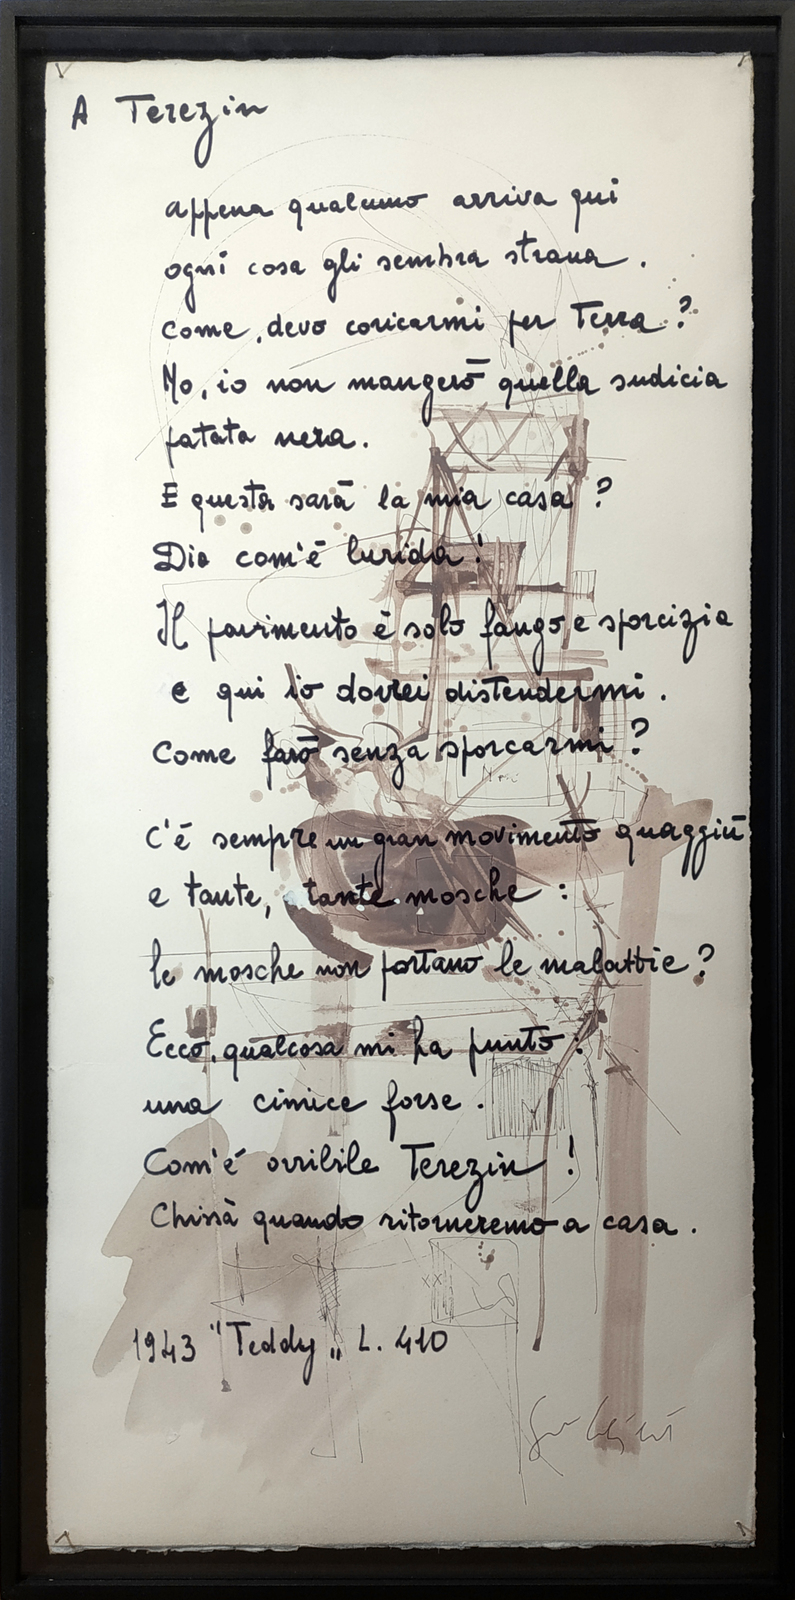 A Terezin
appena qualcuno arriva qui
ogni cosa gli sembra strana.
come, devo coricarmi per Terra?
No, io non mangerō quella sudicia
patata nera.
E questa sarā la mia casa?
Dio com'ē lurida!
Il pavimento ē solo fango e sporcizia
e qui io dovrei distendermi.
Come farō senza sporcarmi?
C'ē sempre un gran movimento quaggiū
e tante, tante mosche:
le mosche non portano le malattie?
Ecco, qualcosa mi ha punto:
una cimice forse.
Com'é orribile Terezin!
Chissà quando ritorneremo a casa.
1943 "Teddy„ L. 410